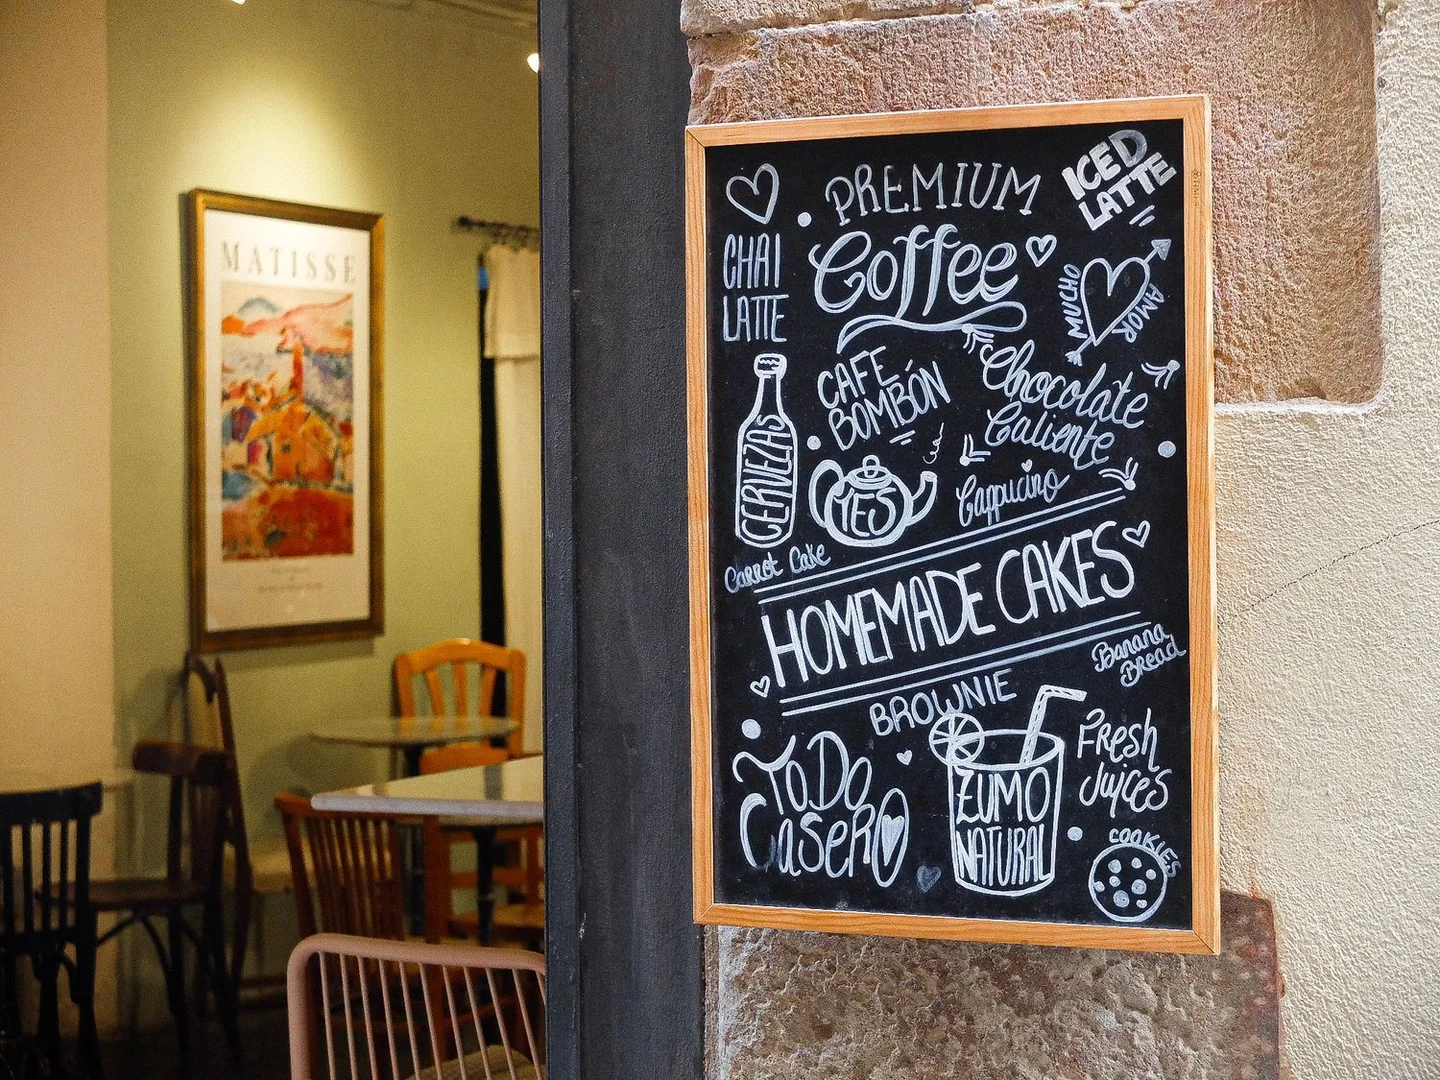 MATISSE
PREMIUM
Coffee
ICED
LATTE
CHAI
LATTE
MUCHO
AMOR
CAFE
BOMBÓN
Chocolate
Caliente
CERVEZAS
YES
Cappucino
Carrot Cake
HOMEMADE CAKES
Banana
Bread
BROWNIE
ToDo
CaseRO
ZUMO
NATURAL
FResh
Juices
COOKIES